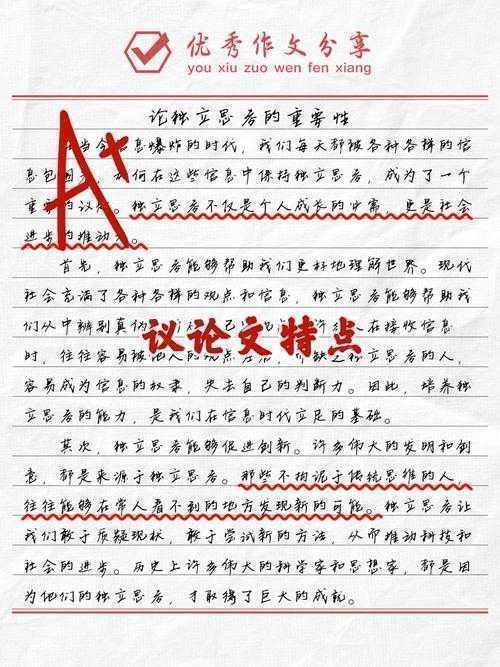 优秀作文分享
you xiu zuo wen fen xiang
论独立思考的重要性
当今信息爆炸的时代，我们每天都被各种各样的信
息包围，如何在这些信息中保持独立思考，成为了一个
重要的议题。独立思考不仅是个人成长的必需，更是社会
进步的推动力。
A+
首先，独立思考能够帮助我们更好地理解世界。现代
社会充满了各种各样的观点和信息，独立思考能够帮助我
们从中辨别真伪 己 许 人在接收信息
议论文特点
时，往往容易被他人的观点左右 缺乏独立思考的人，
容易成为信息的奴隶，失去自己的判断力。因此，培养独
立思考的能力，是我们在信息时代立足的基础。
其次，独立思考能够促进创新。许多伟大的发明和创
意，都是来源于独立思考。那些不拘泥于传统思维的人，
往往能够在常人看不到的地方发现新的可能。独立思考让
我们敢于质疑现状，敢于尝试新的方法，从而推动科技和
社会的进步。历史上许多伟大的科学家和思想家，都是因
为他们的独立思考，才取得了巨大的成就。